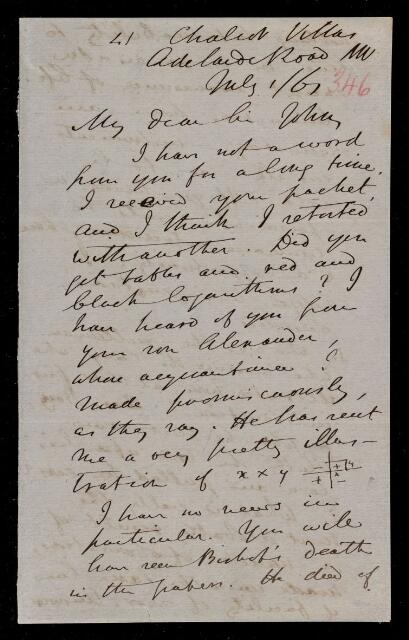 41 Chalcot Villas
Adelaide Road NW
July 1/61 346
My dear Sir John
I have not a word
from you for a long time.
I received your packet,
and I think I retorted
with another. Did you
get tables and red and
black logarithms? I
have heard of you from
your son Alexander,
whose acquaintance I
made promiscuously,
as they say. He has sent
me a very pretty illus-
tration of x × y
I have no news in
particular. You will
have seen Bishop's death
in the papers. He died of